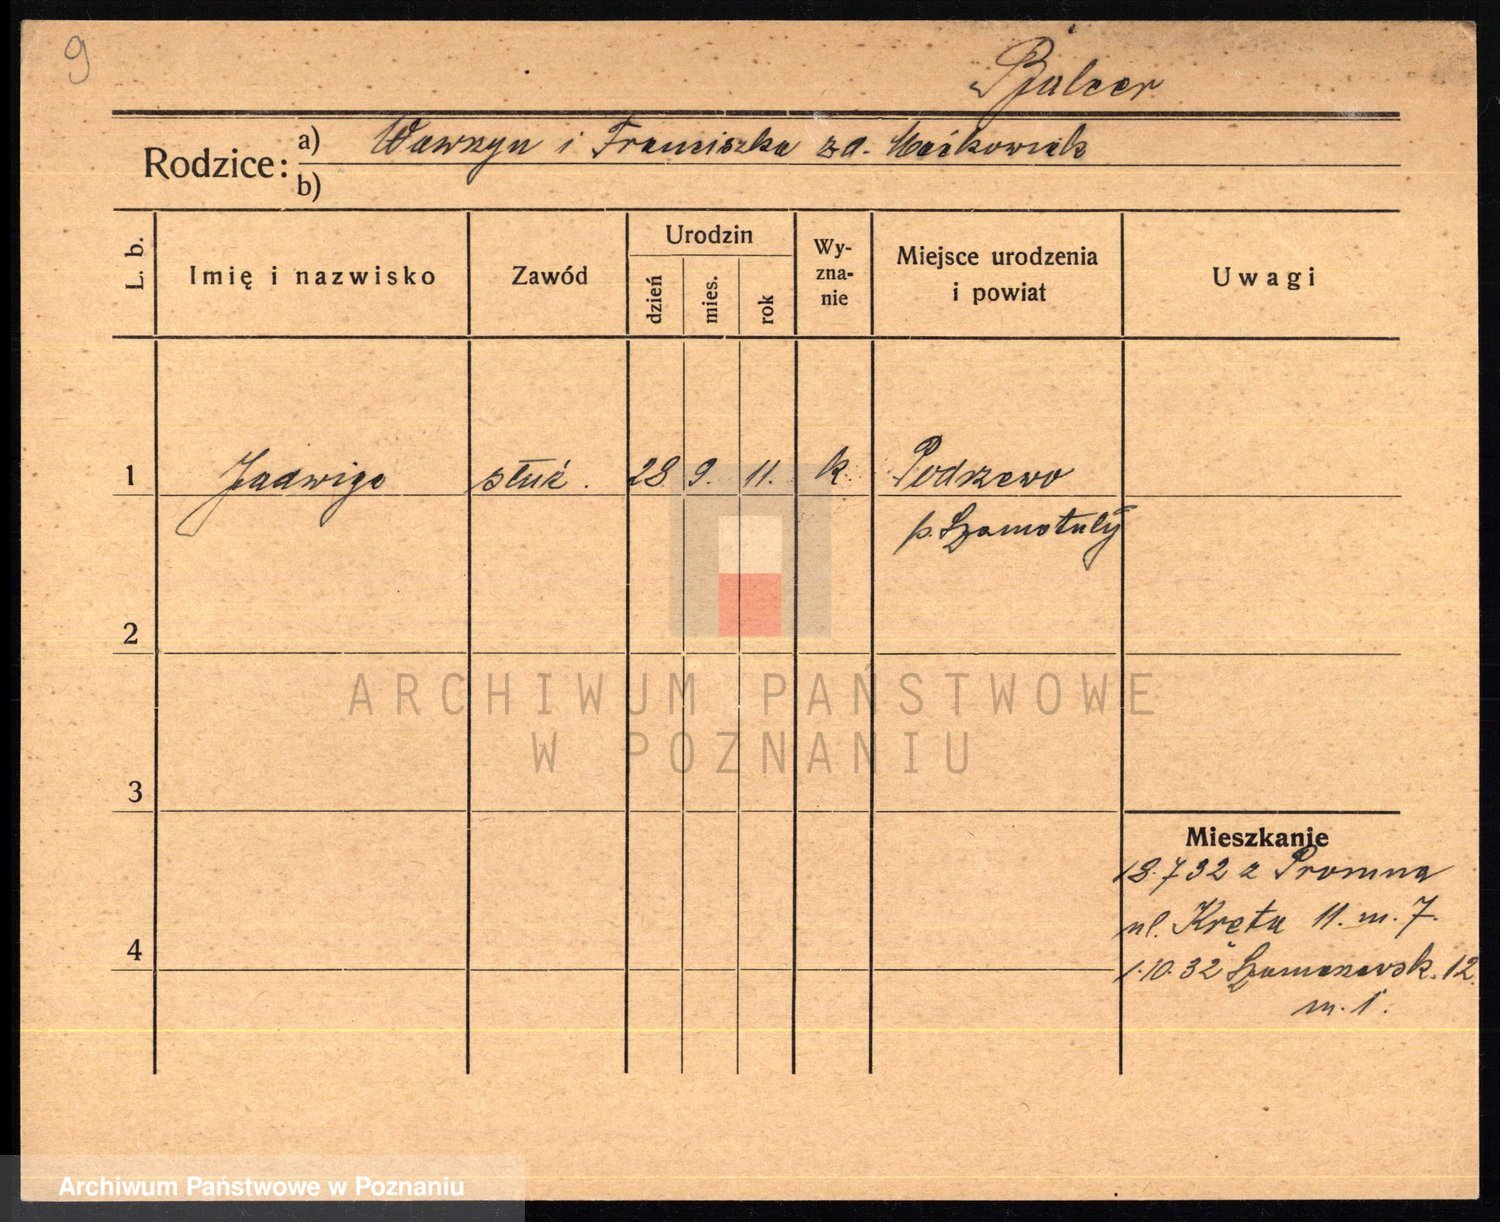 9
Balcer
Rodzice:
a) Wawrzyn i Franciszka zd. Maćkowiak
b)
L. b.
Imię i nazwisko
Zawód
Urodzin
dzień
mies.
rok
Wy-
zna-
nie
Miejsce urodzenia
i powiat
Uwagi
1 Jadwiga służ. 28 9. 11. k. Podrzewo
p. Szamotuły
2
3
4
Mieszkanie
18.7 32 z Promna
ul. Kręta 11. m. 7.
1.10.32 12.
m. 1.
ARCHIWUM PAŃSTWOWE
W POZNANIU
Archiwum Państwowe w Poznaniu